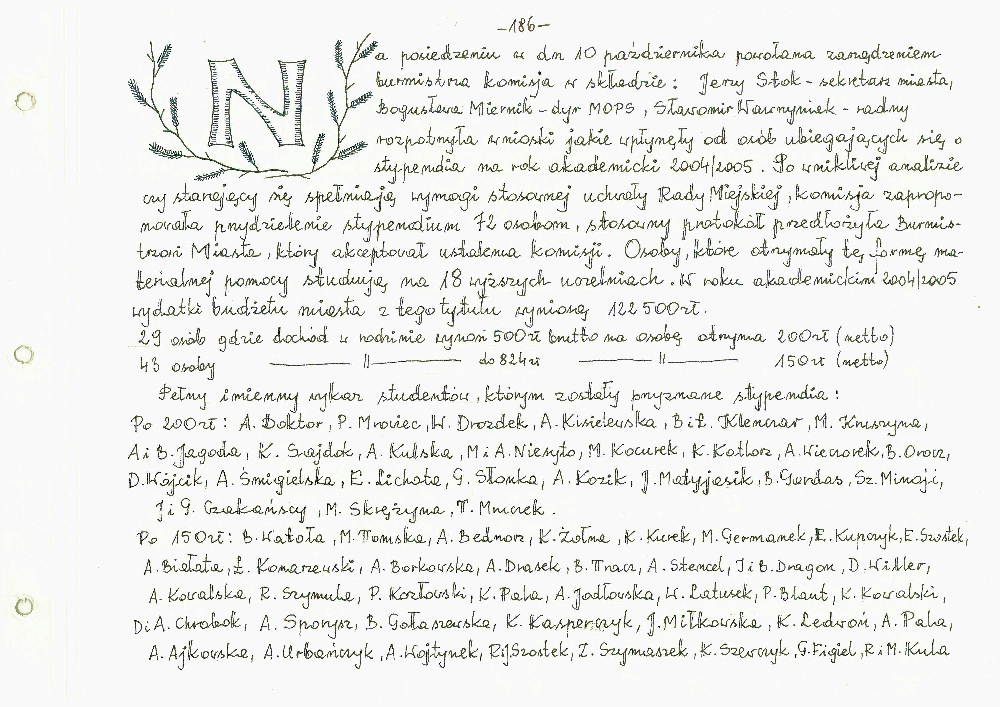 -186-
Na posiedzeniu w dn 10 października powołana zarządzeniem
burmistrza komisja w składzie: Jerzy Stok - sekretarz miasta,
Bogusława Miernik - dyr MOPS, Sławomir Wawrzyniek - radny
rozpatrzyła wnioski jakie wpłynęły od osób ubiegających się o
stypendia na rok akademicki 2004/2005. Po wnikliwej analizie
czy starający się spełniają wymogi stosownej uchwały Rady Miejskiej, komisja zapropo-
nowała przydzielenie stypendium 72 osobom, stosowny protokół przedłożyła Burmis-
trzowi Miasta, który akceptował ustalenia komisji. Osoby, które otrzymały tę formę ma-
terialnej pomocy studiują na 18 wyższych uczelniach. W roku akademickim 2004/2005
wydatki budżetu miasta z tego tytułu wyniosą 122500zł.
29 osób gdzie dochód w rodzinie wynosi 500zł brutto na osobę otrzyma 200zł (netto)
43 osoby —— || —— do 824zł —— || —— 150zł (netto)
Pełny imienny wykaz studentów, którym zostały przyznane stypendia:
Po 200zł: A. Doktor, P. Mrowiec, W. Drozdek, A. Kisielewska, B i Ł. Klenczar, M. Kruszyna,
A i B. Jagoda, K. Gajdok, A. Kulska, M i A. Niesyto, M. Kocurek, K. Kotlorz, A. Wieczorek, B. Orocz,
D. Wójcik, A. Śmigielska, E. Lichota, G. Słonka, A. Kozik, J. Matyjasik, B. Gardas, Sz. Minoji,
J i G. Czakańscy, M. Skrężyna, T. Mrnczek.
Po 150zł: B. Watoła, M. Tomska, A. Bednorz, K. Żołna, K. Kurek, M. Germanek, E. Kupczyk, E. Szostek,
A. Białata, Ł. Komarzewski, A. Borkowska, A. Drasek, B. Tracz, A. Stencel, J i B. Dragon, D. Willer,
A. Kowalska, R. Szymula, P. Kozłowski, K. Pala, A. Jodłowska, W. Latusek, P. Blaut, K. Kowalski,
D i A. Chrobok, A. Sporysz, B. Gołaszewska, K. Kasperczyk, J. Miłkowska, K. Ledwoń, A. Pala,
A. Ajkowska, A. Urbańczyk, A. Wojtynek, R i J Szostek, Z. Szymaszek, K. Szewczyk, G. Figiel, R i M. Kula